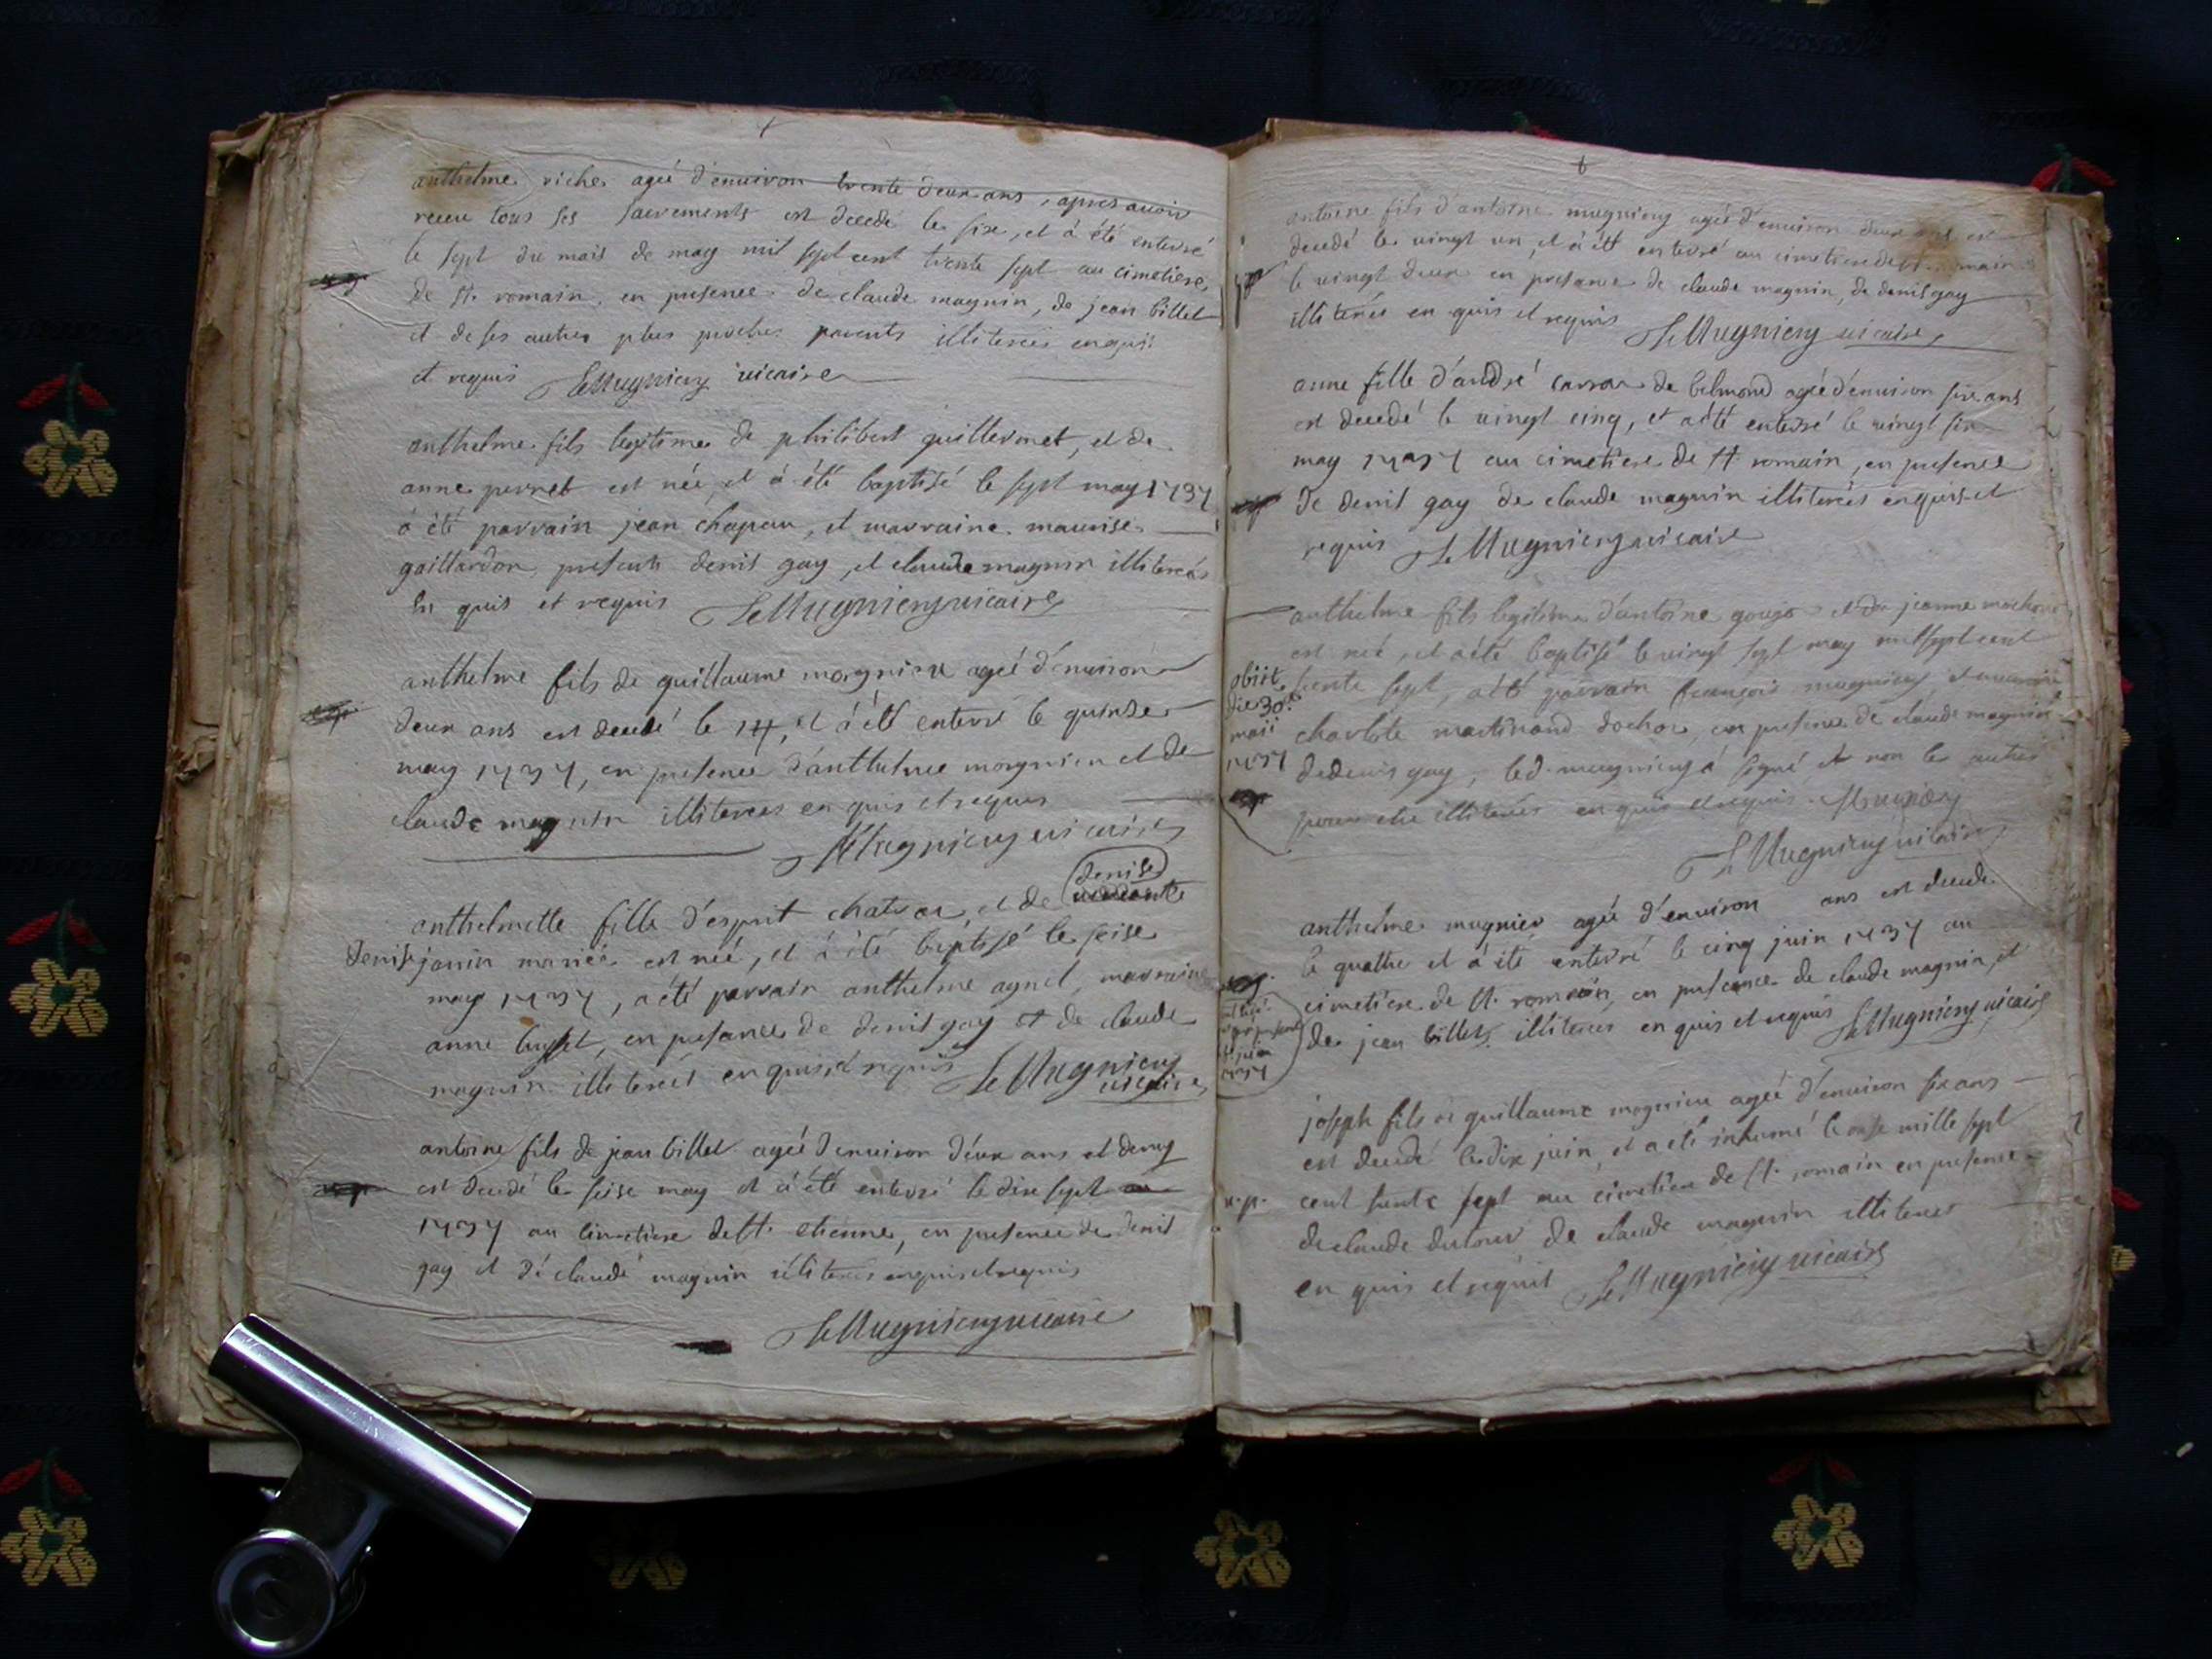 anthelme riche ageé d'enuiron trente deux ans, apres auoir
receu tous ses sacrements est decedé le six, et à été enterré
le sept du mois de may mil sept cent trente sept au cimetiere,
de st. romain, en presence de claude magnin, de jean billet
et de ses autres plus proches parents illiterés enquis
et requis SeMugniery uicaire
anthelme fils legitime de philibert guillermet, et de
anne perret est née, et à été baptisé le sept may 1737
à été parrain jean chapeau, et marraine maurise
gaillardon, presents denis gay, et claude magnin illiterés
en quis et requis SeMugnieryuicaire
anthelme fils de guillaume morgnieu ageé d'enuiron
deux ans est decedé le 14, et à été enterré le quinse
may 1737, en presence d'anthelme morgnieu et de
claude magnin illiterés en quis et requis
SeMugniery uicaire
denise
anthelmette fille d'esprit et de
denise janin mariés est née, et à été baptisé le seise
may 1737, a été parrain anthelme aynet, marraine
anne en presance de denis gay et de claude
magnin illiterés en quis, et requis SeMugniery
uicaire
antoine fils de jean billet ageé d'enuiron deux ans et demy
est decedé le seise may et à été enterré le dix sept au
1737 au cimetiere de st. etienne, en presence de denis
gay et de claude magnin illiterés enquis et requis
SeMugnieryuicaire
antoine fils d'antoine mugniery ageé d'enuiron deux ans est
decedé le uingt un, et à été enterré au cimetiere de st. romain
le uingt deux en presance de claude magnin, de denis gay
illiterés en quis et requis SeMugniery uicaire
anne fille d'andré carrar de belmond ageé d'enuiron six ans
est decedé le uingt cinq, et a été enterré le uingt six
may 1737 au cimetiere de st romain, en presence
de denis gay de claude magnin illiterés enquis et
requis SeMugnieryuicaire
anthelme fils legitime d'antoine goujo et de jeanne
est née, et a été baptisé le uingt sept may mil sept cent
trente sept, a été parrain françois mugniery et
charlote martinand dochoz, en presence de claude magnin
de denis gay, led. mugniery à signé, et non les autres
pour etre illiterés en quis et requis
SeMugniery uicaire
obiit
die 30.
maii
1737
anthelme mugnier ageé d'enuiron ans est decedé
le quattre et à été enterré le cinq juin 1737 au
cimetiere de st. romain, en presance de claude magnin, et
de jean billet, illiterés en quis et requis SeMugniery uicaire
juin
1737
joseph fils de guillaume morgnieu ageé d'enuiron six ans
est decedé le dix juin, et a été inhumé le onse mille sept
cent trente sept au cimetiere de st. romain en presence
de claude dutour de claude magnin illiterés
en quis et requis SeMugniery uicaire